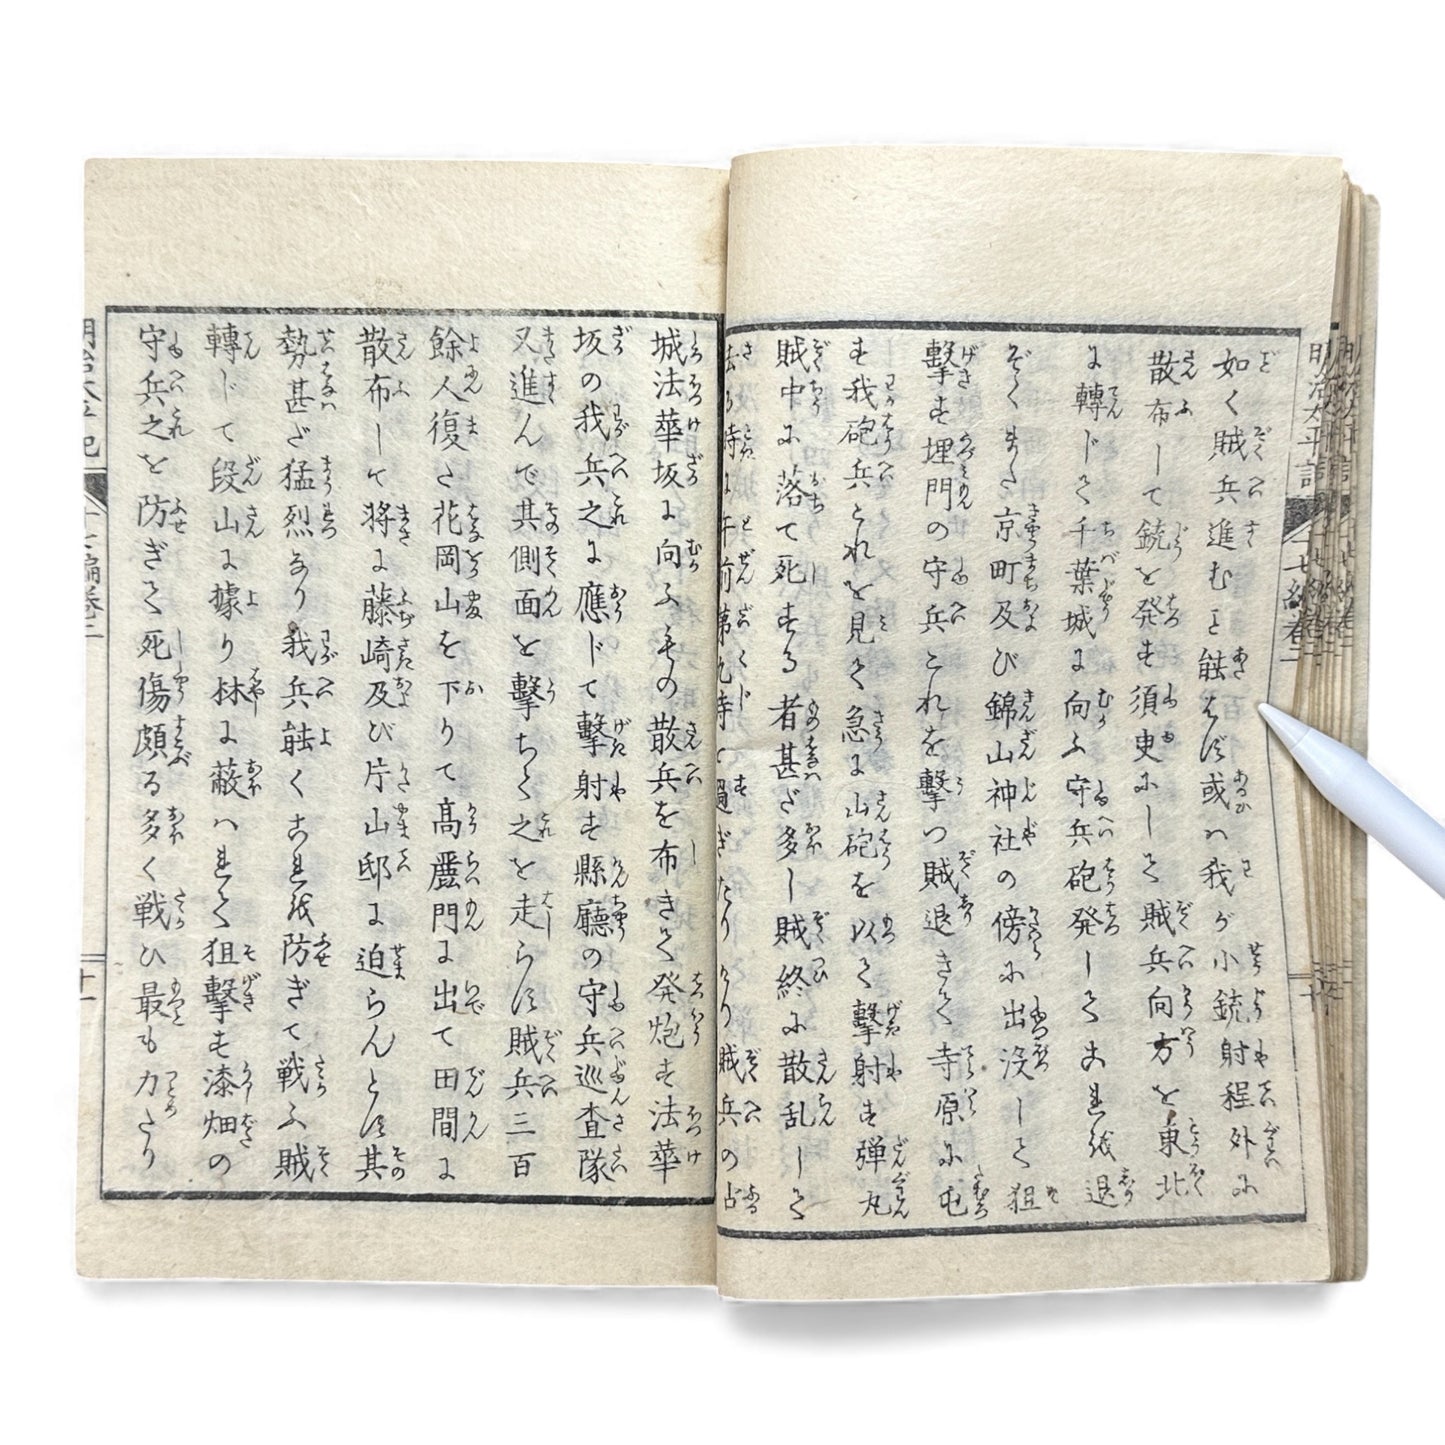 如く賊兵進むこと能はず或ハ我が小銃射程外に
散布して銃を発す須臾にして賊兵向方を東北
に轉じて千葉城に向ふ守兵砲発してこれを退
ぞくまた京町及び錦山神社の傍に出没して狙
撃す埋門の守兵これを撃つ賊退きて寺原に屯
す我砲兵これを見て急に山砲を以て撃射す弾丸
賊中に落て死する者甚だ多し賊終に散乱して
去る時に午前第九時を過ぎたりけり賊兵の占
城法華坂に向ふもの散兵を布きて発炮す法華
坂の我兵之に應じて撃射す縣廳の守兵巡査隊
又進んで其側面を撃ちて之を走らす賊兵三百
餘人復た花岡山を下りて高麗門に出て田間に
散布して将に藤崎及び片山邸に迫らんとす其
勢甚だ猛烈なり我兵能くこれを防ぎて戦ふ賊
轉じて段山に據り林に蔽ハれて狙撃す漆畑の
守兵之を防ぎて死傷頗る多く戦ひ最も力たり
明治太平記
十七編巻二
十一